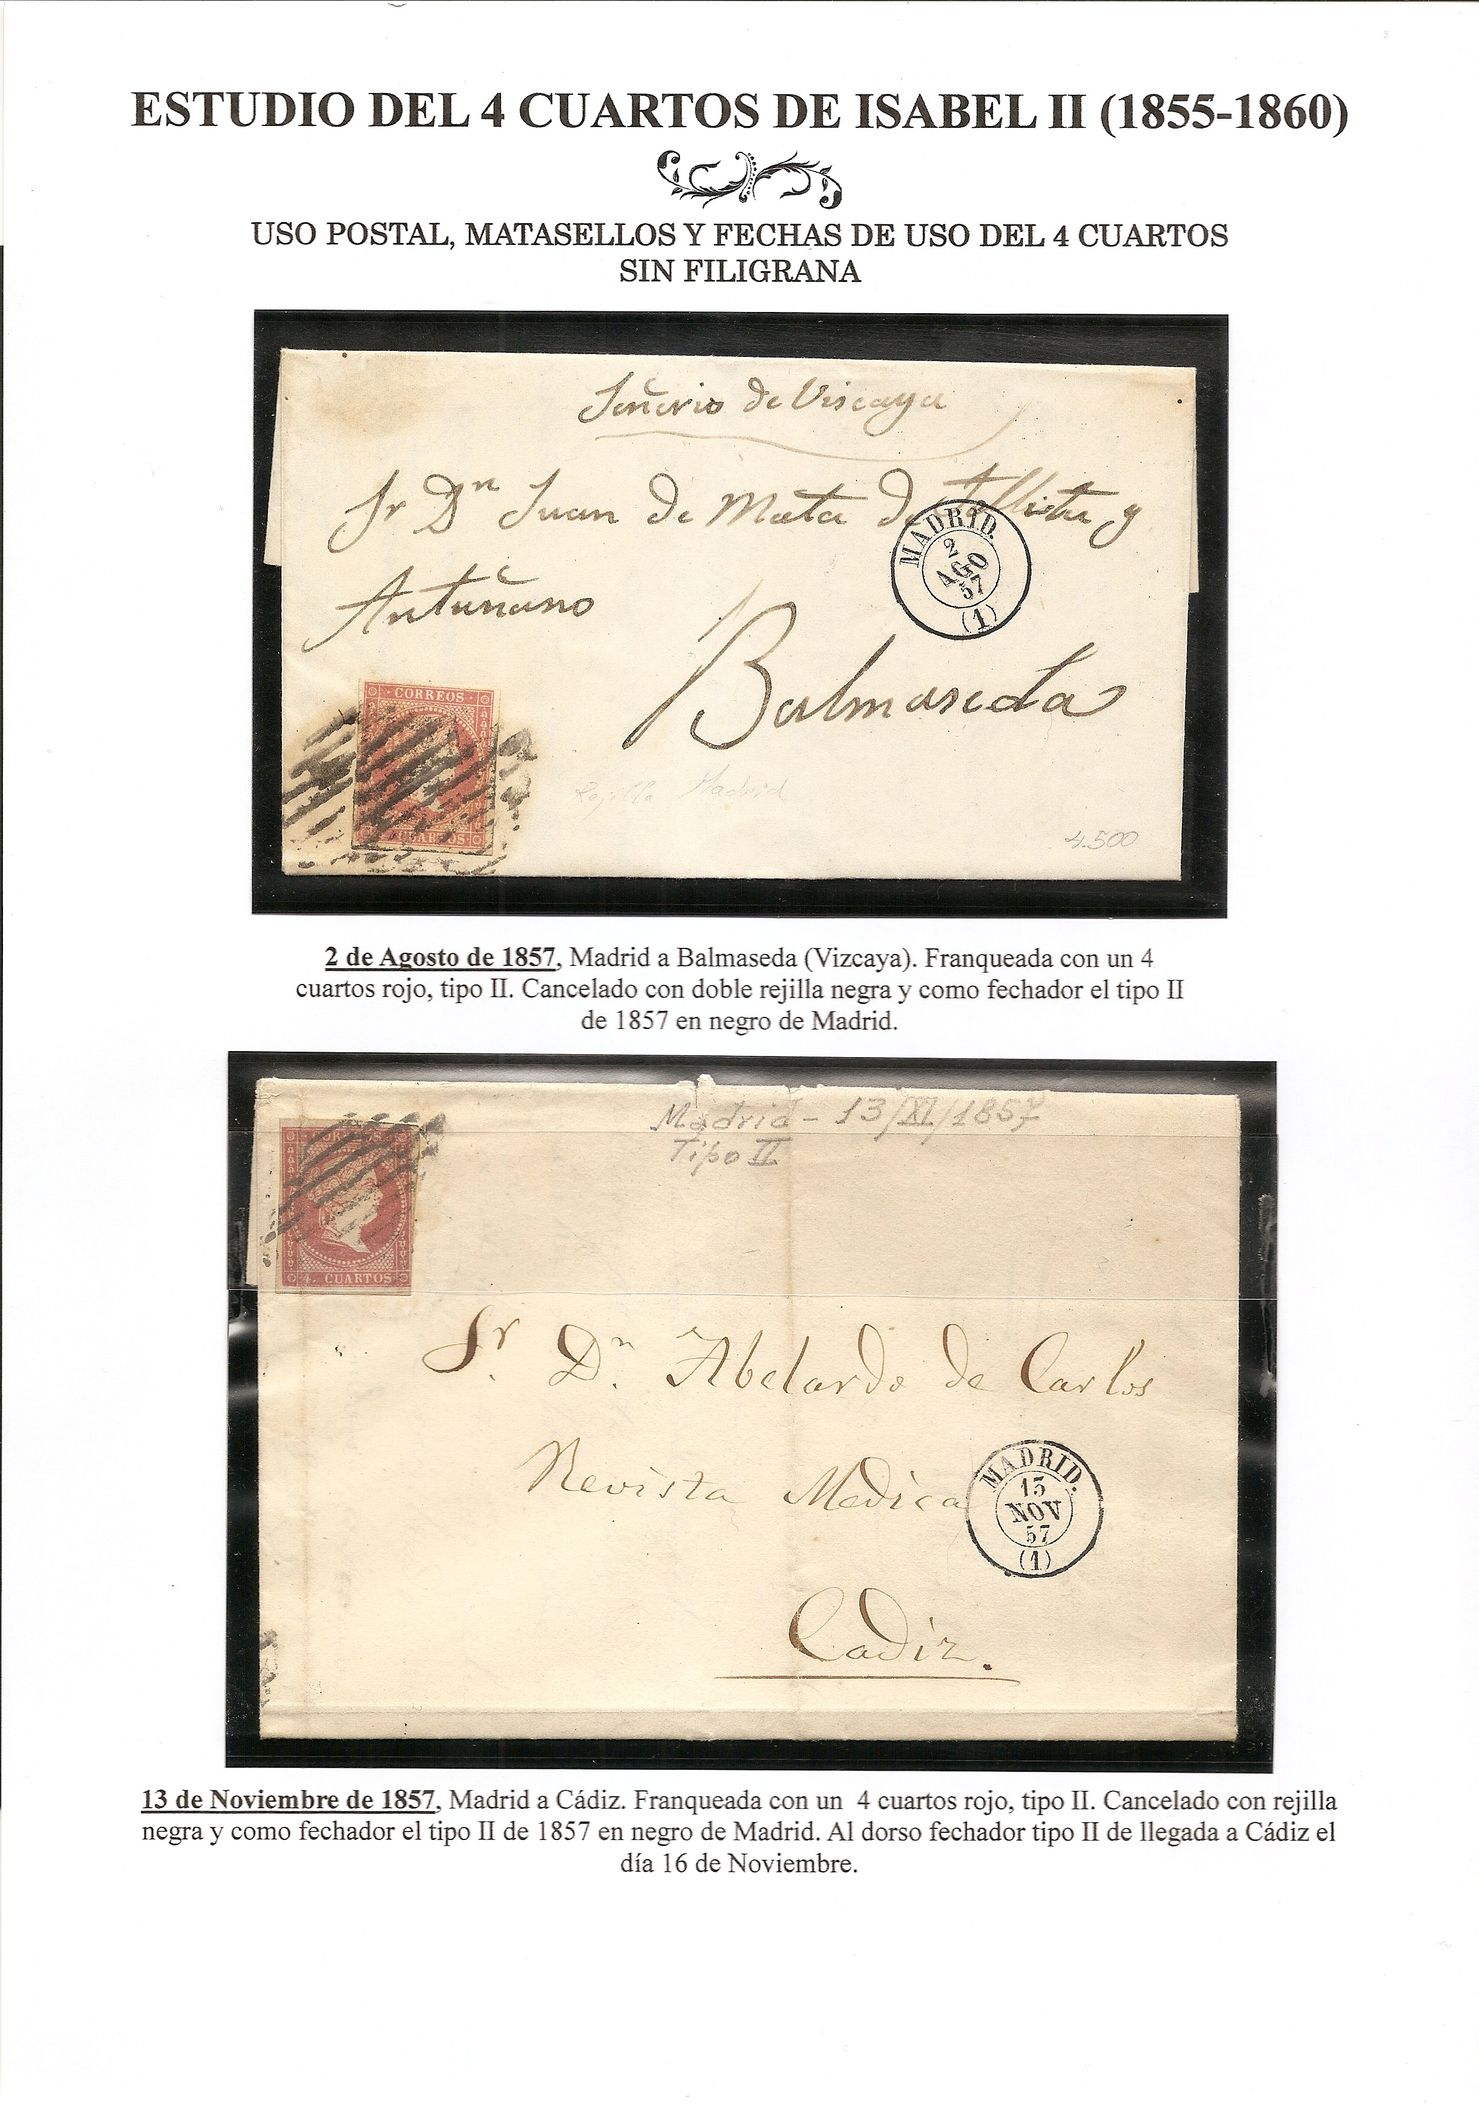 ESTUDIO DEL 4 CUARTOS DE ISABEL II (1855-1860)
USO POSTAL, MATASELLOS Y FECHAS DE USO DEL 4 CUARTOS
SIN FILIGRANA
Señorio de Viscaya
Sr Dn Juan de Mata de y
MADRID.
2
AGO
57
(1)
Antuñano
Balmaseda
CORREOS
CUARTOS
Rejilla Madrid
4.500
2 de Agosto de 1857, Madrid a Balmaseda (Vizcaya). Franqueada con un 4
cuartos rojo, tipo II. Cancelado con doble rejilla negra y como fechador el tipo II
de 1857 en negro de Madrid.
Madrid - 13/XI/1857
Tipo II
CORREOS
4. CUARTOS
Sr. Dn. Abelardo de Carlos
Revista Medica
MADRID.
13
NOV
57
(1)
Cadiz.
13 de Noviembre de 1857, Madrid a Cádiz. Franqueada con un 4 cuartos rojo, tipo II. Cancelado con rejilla
negra y como fechador el tipo II de 1857 en negro de Madrid. Al dorso fechador tipo II de llegada a Cádiz el
día 16 de Noviembre.